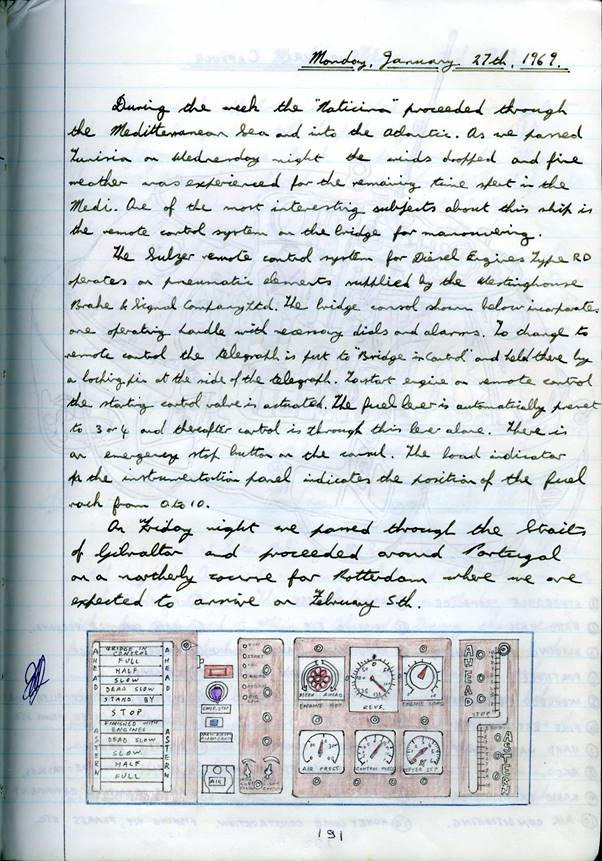 Monday, January 27th, 1969.
During the week the "Naticina" proceeded through
the Mediterranean Sea and into the Atlantic. As we passed
Tunisia on Wednesday night the winds dropped and fine
weather was experienced for the remaining time spent in the
Medi. One of the most interesting subjects about this ship is
the remote control system on the bridge for manoeuvring.
The Sulzer remote control system for Diesel Engines Type RD
operates on pneumatic elements supplied by the Westinghouse
Brake & Signal Company Ltd. The bridge consol shown below incorporates
one operating handle with necessary dials and alarms. To change to
remote control the telegraph is put to "Bridge in Control" and held there by
a locking pin at the side of the telegraph. To start engine on remote control
the starting control valve is actuated. The fuel lever is automatically preset
to 3 or 4 and thereafter control is through this lever alone. There is
an emergency stop button on the consol. The load indicator
on the instrumentation panel indicates the position of the fuel
rack from 0 to 10.
On Friday night we passed through the Straits
of Gibraltar and proceeded around Portugal
on a northerly course for Rotterdam where we are
expected to arrive on February 5th.
AHEAD
BRIDGE IN CONTROL
FULL
HALF
SLOW
DEAD SLOW
STAND BY
STOP
FINISHED WITH ENGINES
DEAD SLOW
SLOW
HALF
FULL
ASTERN
AHEAD
ASTERN
EMER. STOP
AIR
START
ASTERN AHEAD
REVS.
ENGINE LOAD
AIR PRESS.
CONTROL PRESS.
AHEAD
STOP
ASTERN
191